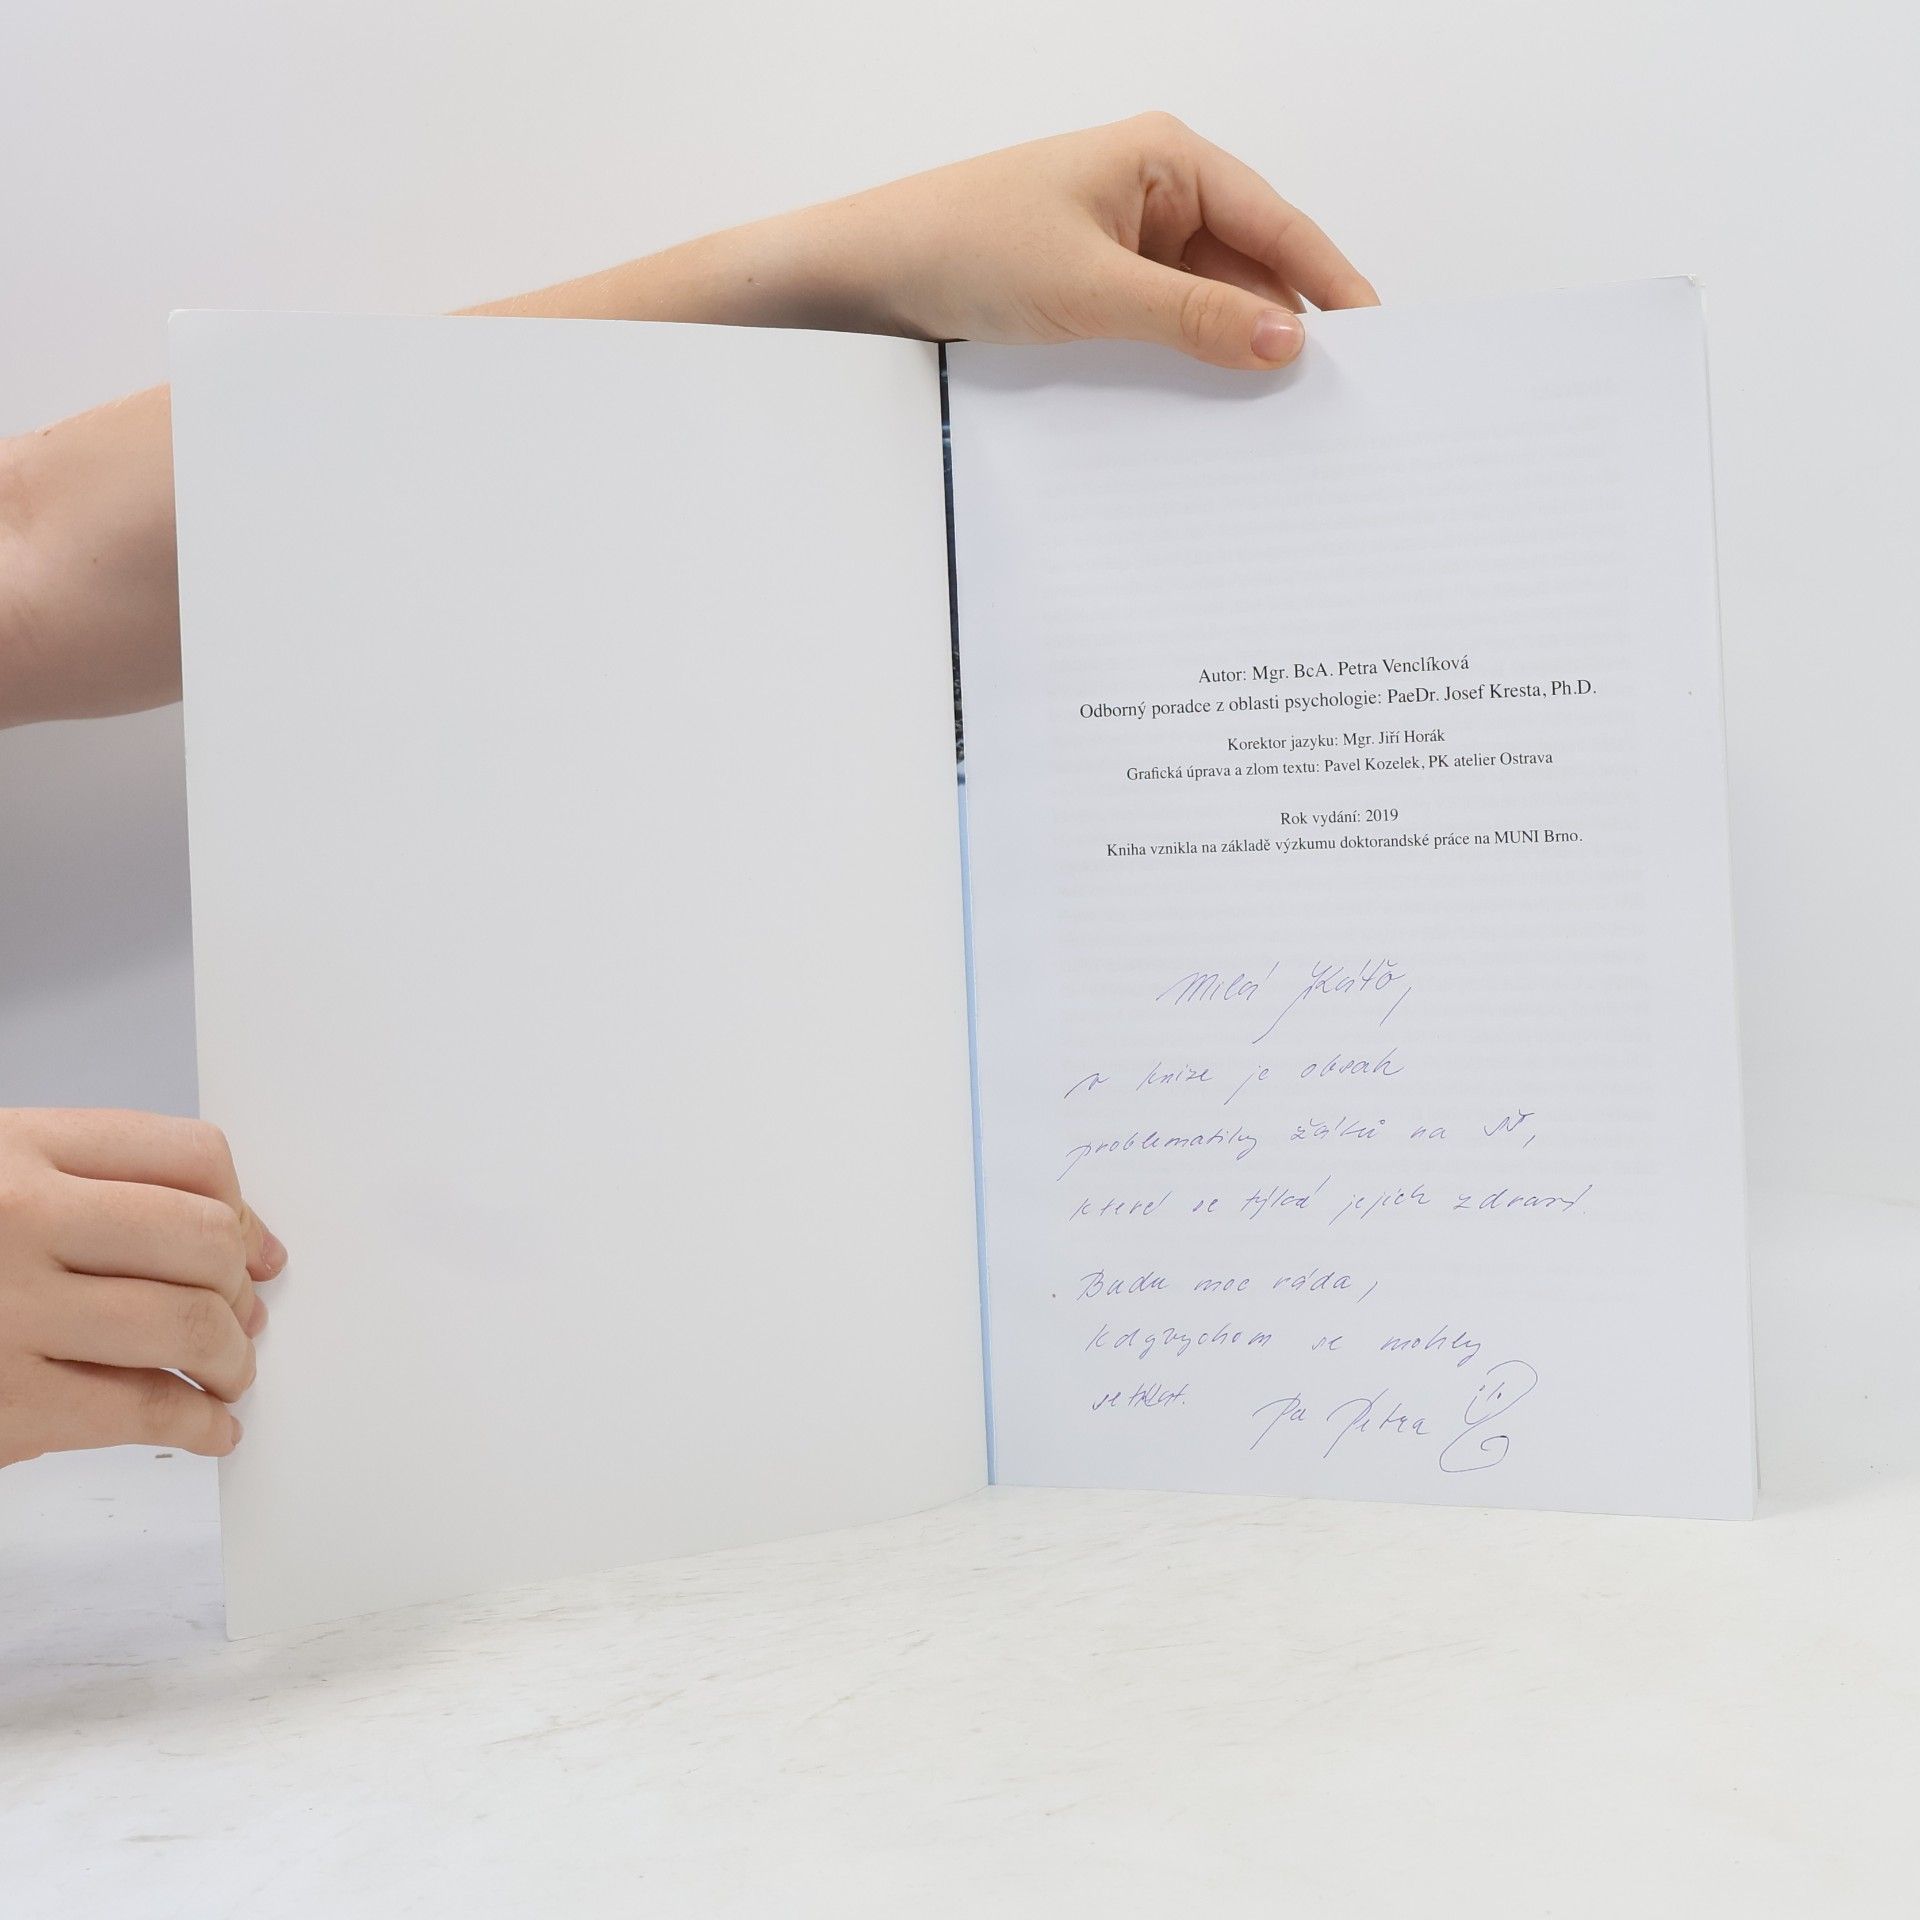 Autor: Mgr. BcA. Petra Venclíková
Odborný poradce z oblasti psychologie: PaeDr. Josef Kresta, Ph.D.
Korektor jazyku: Mgr. Jiří Horák
Grafická úprava a zlom textu: Pavel Kozelek, PK atelier Ostrava
Rok vydání: 2019
Kniha vznikla na základě výzkumu doktorandské práce na MUNI Brno.
Milá Káťo,
v knize je obsah
problematiky žáků na
které se týkají jejich zdraví.
Budu moc ráda,
kdybychom se mohly
setkat. Pa Petra